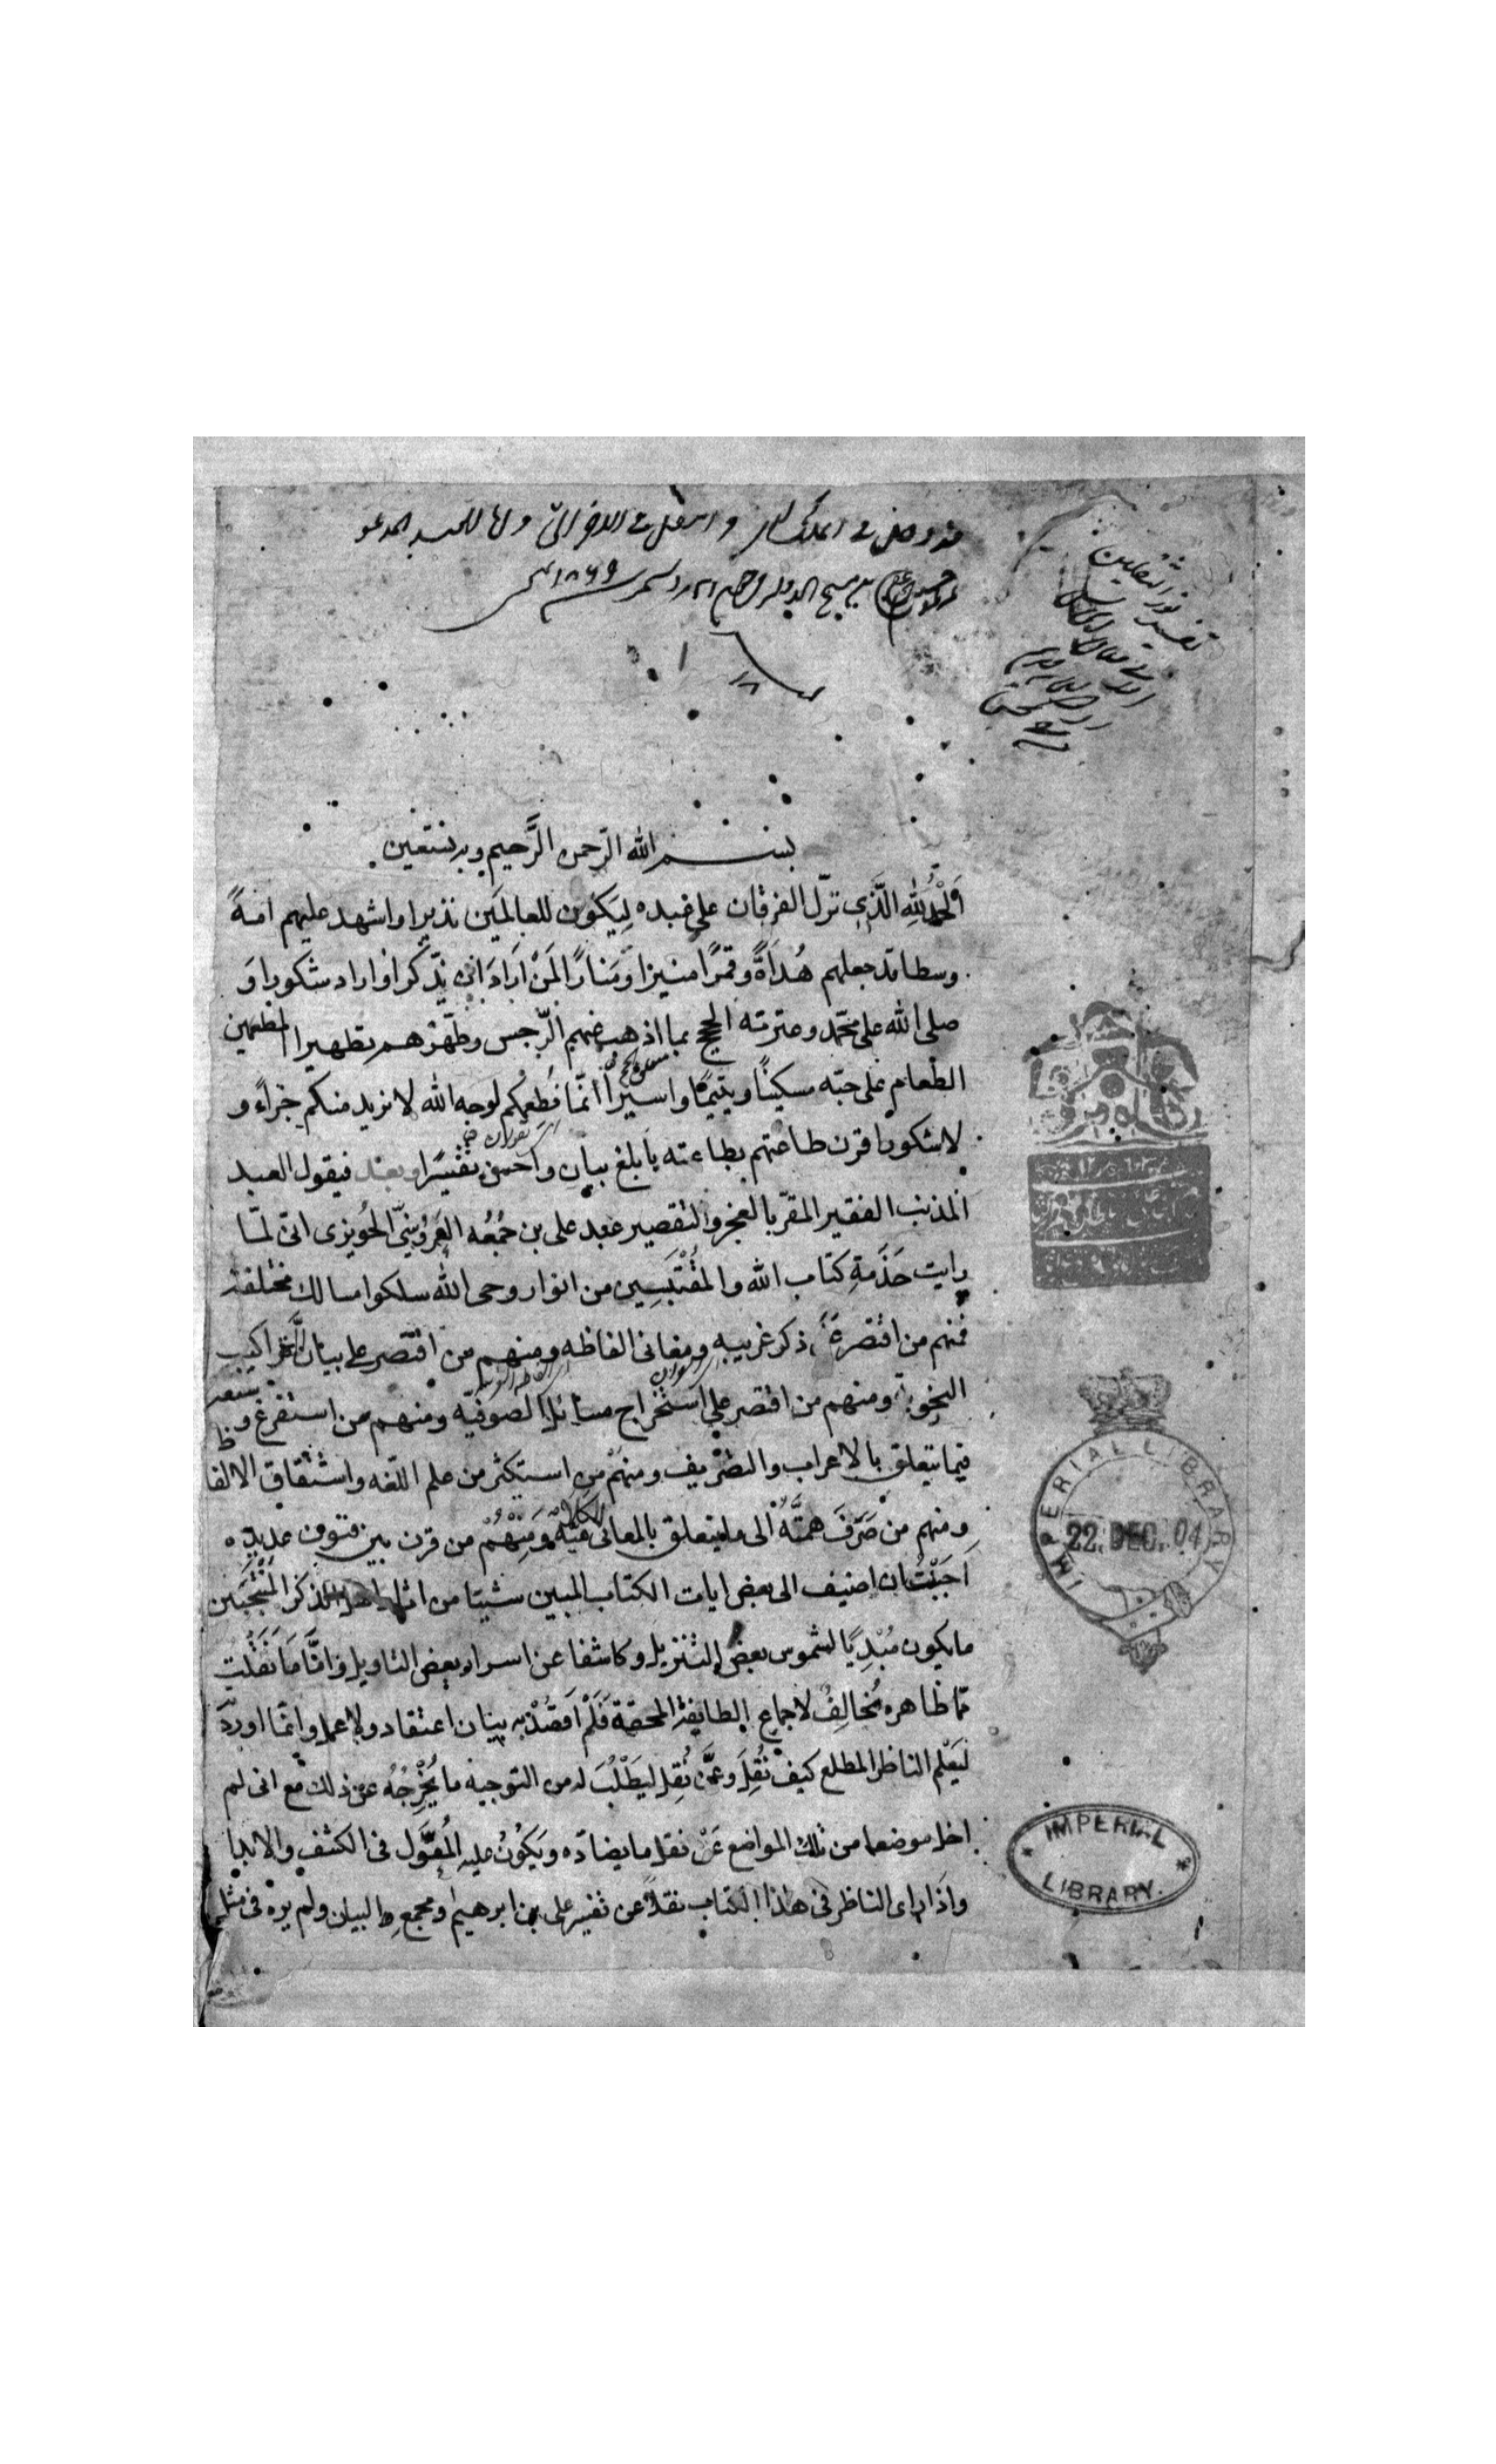 تفسير نور الثقلين
بسم الله الرحمن الرحيم وبه نستعين
الحمد لله الذي نزل الفرقان على عبده ليكون للعالمين نذيرا واشهد عليهم امة
وسطا قد جعلهم هداة وقمرا منيرا ومنارا لمن اراد ان يذكر او اراد شكورا و
صلى الله على محمد وعترته الحجج بما اذهب عنهم الرجس وطهرهم تطهيرا المطعمين
الطعام على حبه مسكينا ويتيما واسيرا انما نطعمكم لوجه الله لا نريد منكم جزاء و
لا شكورا قرن طاعتهم بطاعته بابلغ بيان واحسن تفسيرا وبعد فيقول العبد
المذنب الفقير المقر بالعجز والتقصير عبد على بن جُمُعُه العَرُوسِيّ الحُويزى انى لما
رايت خدمة كتاب الله والمُقْتَبَسِين من انوار وحى الله سلكوا مسالك مختلفة
فمنهم من اقتصر على ذكر غريبه ومعانى الفاظه ومنهم من اقتصر على بيان التراكيب
النحوية ومنهم من اقتصر على استخراج مسائل الصوفيه ومنهم من استفرغ وسعه
فيما يتعلق بالاعراب والتصريف ومنهم من استكثر من علم اللغه واشتقاق الالفاظ
ومنهم من صَرَفَ همتَهُ الى ما يتعلق بالمعانى الكلاميّة ومِنْهُمْ من قرن بين فنون عديده
احببت ان اضيف الى بعض ايات الكتاب المبين شيئا من اثار اهل الذكر المنتجبين
ما يكون مُبْدِيًا لشموس بعض التنزيل وكاشفا عن اسرار بعض التاويل وامّا ما نقلت
مما ظاهره يُخالِفُ لاجماع الطايفة المحقة فَلَمْ اَقصُدْ به بيان اعتقاد ولا عمل وانما اورده
ليَعْلم الناظر المطلع كيف نُقِلَ وعمَّن نُقِل ليَطْلُبَ له من التوجيه ما يُخْرِجُهُ عن ذلك مع انى لم
اخل موضعا من تلك المواضع عَنْ نقل ما يضاده ويَكُونُ عليه المُعَوَّل فى الكشف والابدا
واذَا راى الناظر فى هذا الكتاب نقلاً عن تفسير على بن ابرهيم ومجمع البيان ولم يره فى مثله
IMPERIAL LIBRARY
22. DEC. 04
IMPERIAL
LIBRARY.